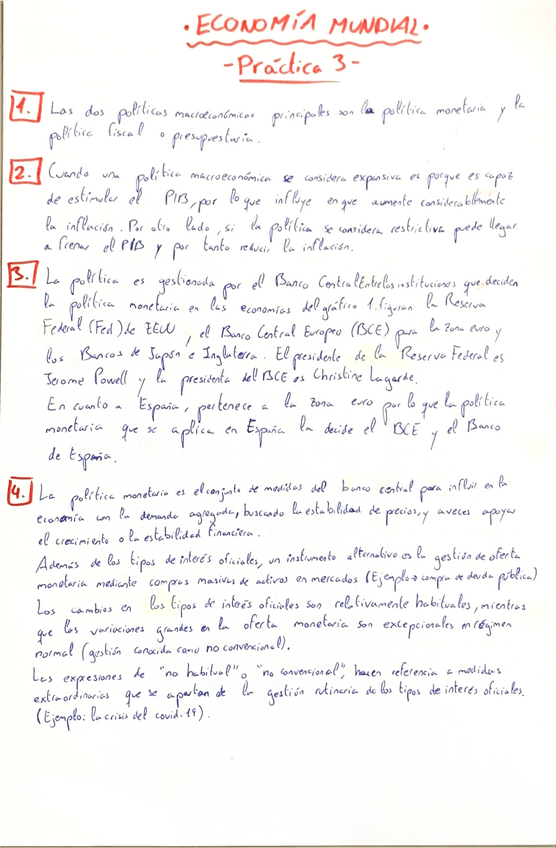 · ECONOMÍA MUNDIAL ·
- Práctica 3 -
1. Las dos políticas macroeconómicas principales son la política monetaria y la
política fiscal o presupuestaria.
2. Cuando una política macroeconómica se considera expansiva es porque es capaz
de estimular el PIB, por lo que influye en que aumente considerablemente
la inflación. Por otro lado, si la política se considera restrictiva puede llegar
a frenar el PIB y por tanto reducir la inflación.
3. La política es gestionada por el Banco Central Entre las instituciones que deciden
la política monetaria en las economías del gráfico 1. figuran la Reserva
Federal (Fed) de EEUU, el Banco Central Europeo (BCE) para la zona euro y
los Bancos de Japón e Inglaterra. El presidente de la Reserva Federal es
Jerome Powell y la presidenta del BCE es Christine Lagarde.
En cuanto a España, pertenece a la zona euro por lo que la política
monetaria que se aplica en España la decide el BCE y el Banco
de España.
4. La política monetaria es el conjunto de medidas del banco central para influir en la
economía con la demanda agregada, buscando la estabilidad de precios, y a veces apoyar
el crecimiento o la estabilidad financiera.
Además de los tipos de interés oficiales, un instrumento alternativo es la gestión de oferta
monetaria mediante compras masivas de activos en mercados (Ejemplo → compra de deuda pública)
Los cambios en los tipos de interés oficiales son relativamente habituales, mientras
que las variaciones grandes en la oferta monetaria son excepcionales en régimen
normal (gestión conocida como no convencional).
Las expresiones de "no habitual" o "no convencional", hacen referencia a medidas
extraordinarias que se apartan de la gestión rutinaria de los tipos de interés oficiales.
(Ejemplo: la crisis del covid-19).